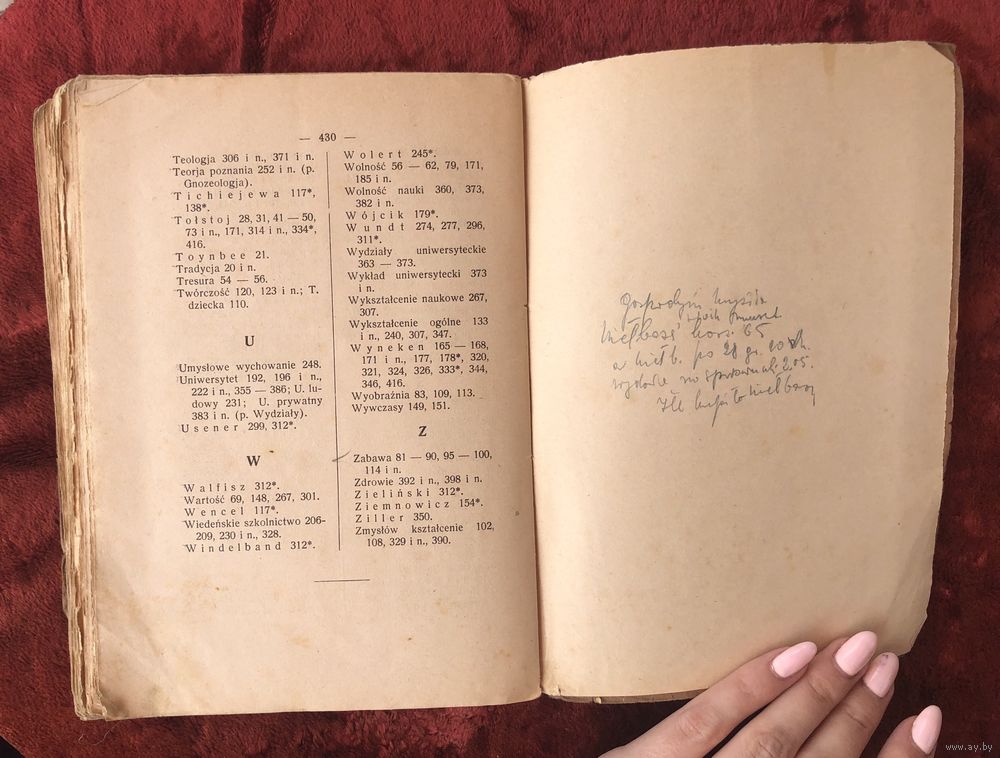 — 430 —
Teologja 306 i n., 371 i n.
Teorja poznania 252 i n. (p.
Gnozeologja).
Tichiejewa 117*,
138*.
Tołstoj 28, 31, 41 — 50,
73 i n., 171, 314 i n., 334*,
416.
Toynbee 21.
Tradycja 20 i n.
Tresura 54 — 56.
Twórczość 120, 123 i n.; T.
dziecka 110.
U
Umysłowe wychowanie 248.
Uniwersytet 192, 196 i n.,
222 i n., 355 — 386; U. lu-
dowy 231; U. prywatny
383 i n. (p. Wydziały).
Usener 299, 312*.
W
Walfisz 312*.
Wartość 69, 148, 267, 301.
Wencel 117*.
Wiedeńskie szkolnictwo 206-
209, 230 i n., 328.
Windelband 312*.
Wolert 245*.
Wolność 56 — 62, 79, 171,
185 i n.
Wolność nauki 360, 373,
382 i n.
Wójcik 179*.
Wundt 274, 277, 296,
311*.
Wydziały uniwersyteckie
363 — 373.
Wykład uniwersytecki 373
i n.
Wykształcenie naukowe 267,
307.
Wykształcenie ogólne 133
i n., 240, 307, 347.
Wyneken 165 — 168,
171 i n., 177, 178*, 320,
321, 324, 326, 333*, 344,
346, 416.
Wyobraźnia 83, 109, 113.
Wywczasy 149, 151.
Z
Zabawa 81 — 90, 95 — 100,
114 i n.
Zdrowie 392 i n., 398 i n.
Zieliński 312*.
Ziemnowicz 154*.
Ziller 350.
Zmysłów kształcenie 102,
108, 329 i n., 390.
Gospodyni
65
a kiełb. po 28 gr.
2.05.
Ile
www.ay.by